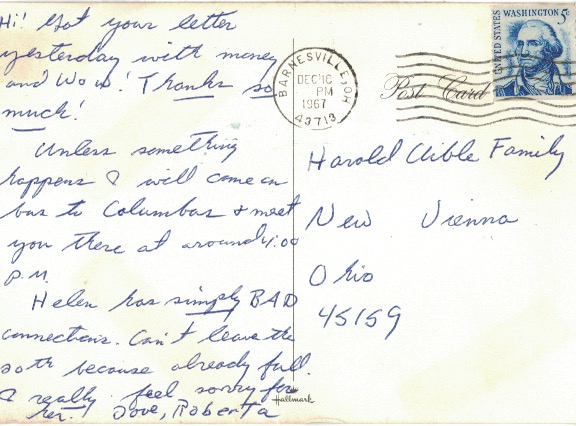 Hi! Got your letter
yesterday with money
and Wow! Thanks so
much!
Unless something
happens I will come on
bus to Columbus + meet
you there at around 4:00
p.m.
Helen has simply BAD
connections. Can't leave the
20th because already full.
I really feel sorry for
her! Love, Roberta
BARNESVILLE, OH
DEC 16
PM
1967
43713
Post Card
UNITED STATES
WASHINGTON 5c
Harold Uible Family
New Vienna
Ohio
45159
Hallmark